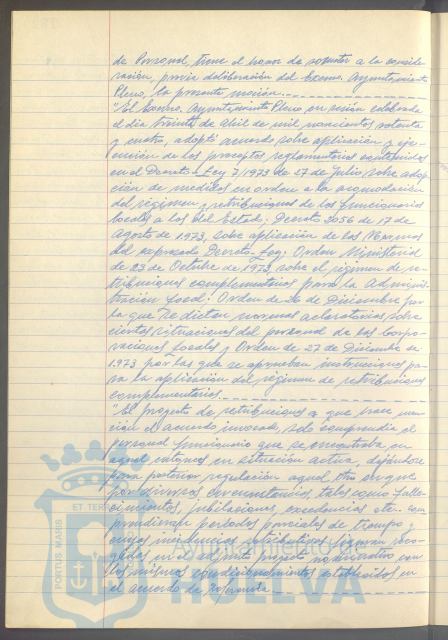 de Personal, tiene el honor de someter a la conside-
ración, previa deliberación del Excmo. Ayuntamiento
Pleno, la presente moción.
"El Excmo. Ayuntamiento Pleno en sesión celebrada
el día treinta de abril de mil novecientos setenta
y cuatro, adoptó acuerdo sobre aplicación y eje-
cución de los preceptos reglamentarios contenidos
en el Decreto-Ley 7/1973 de 27 de Julio sobre adop-
ción de medidas en orden a la acomodación
del régimen y retribuciones de los funcionarios
locales a los del Estado. Decreto 2056 de 17 de
Agosto de 1.973, sobre aplicación de las Normas
del expresado Decreto-Ley; Orden Ministerial
de 23 de Octubre de 1973, sobre el régimen de re-
tribuciones complementarias para la Adminis-
tración Local; Orden de 26 de Diciembre por
la que se dictan normas aclaratorias sobre
ciertas situaciones del personal de las Corpo-
raciones Locales y Orden de 27 de Diciembre de
1.973 por las que se aprueban instrucciones pa-
ra la aplicación del régimen de retribuciones
complementarias.
"El proyecto de retribuciones a que hace men-
ción el acuerdo invocado, solo comprendía el
personal funcionario que se encontraba en
aquel entonces en situación activa, dejándose
para posterior regulación aquel otro en que
por diversas circunstancias tales como falle-
cimientos, jubilaciones, excedencias etc. com-
prendieran períodos parciales de tiempo y
cuyas incidencias retributivas figuran reco-
gidas en el adjunto proyecto
los mismos condicionamientos establecidos en
el acuerdo de referencia
PORTUS MARIS
ET TERR
Ayuntamiento de
HUELVA